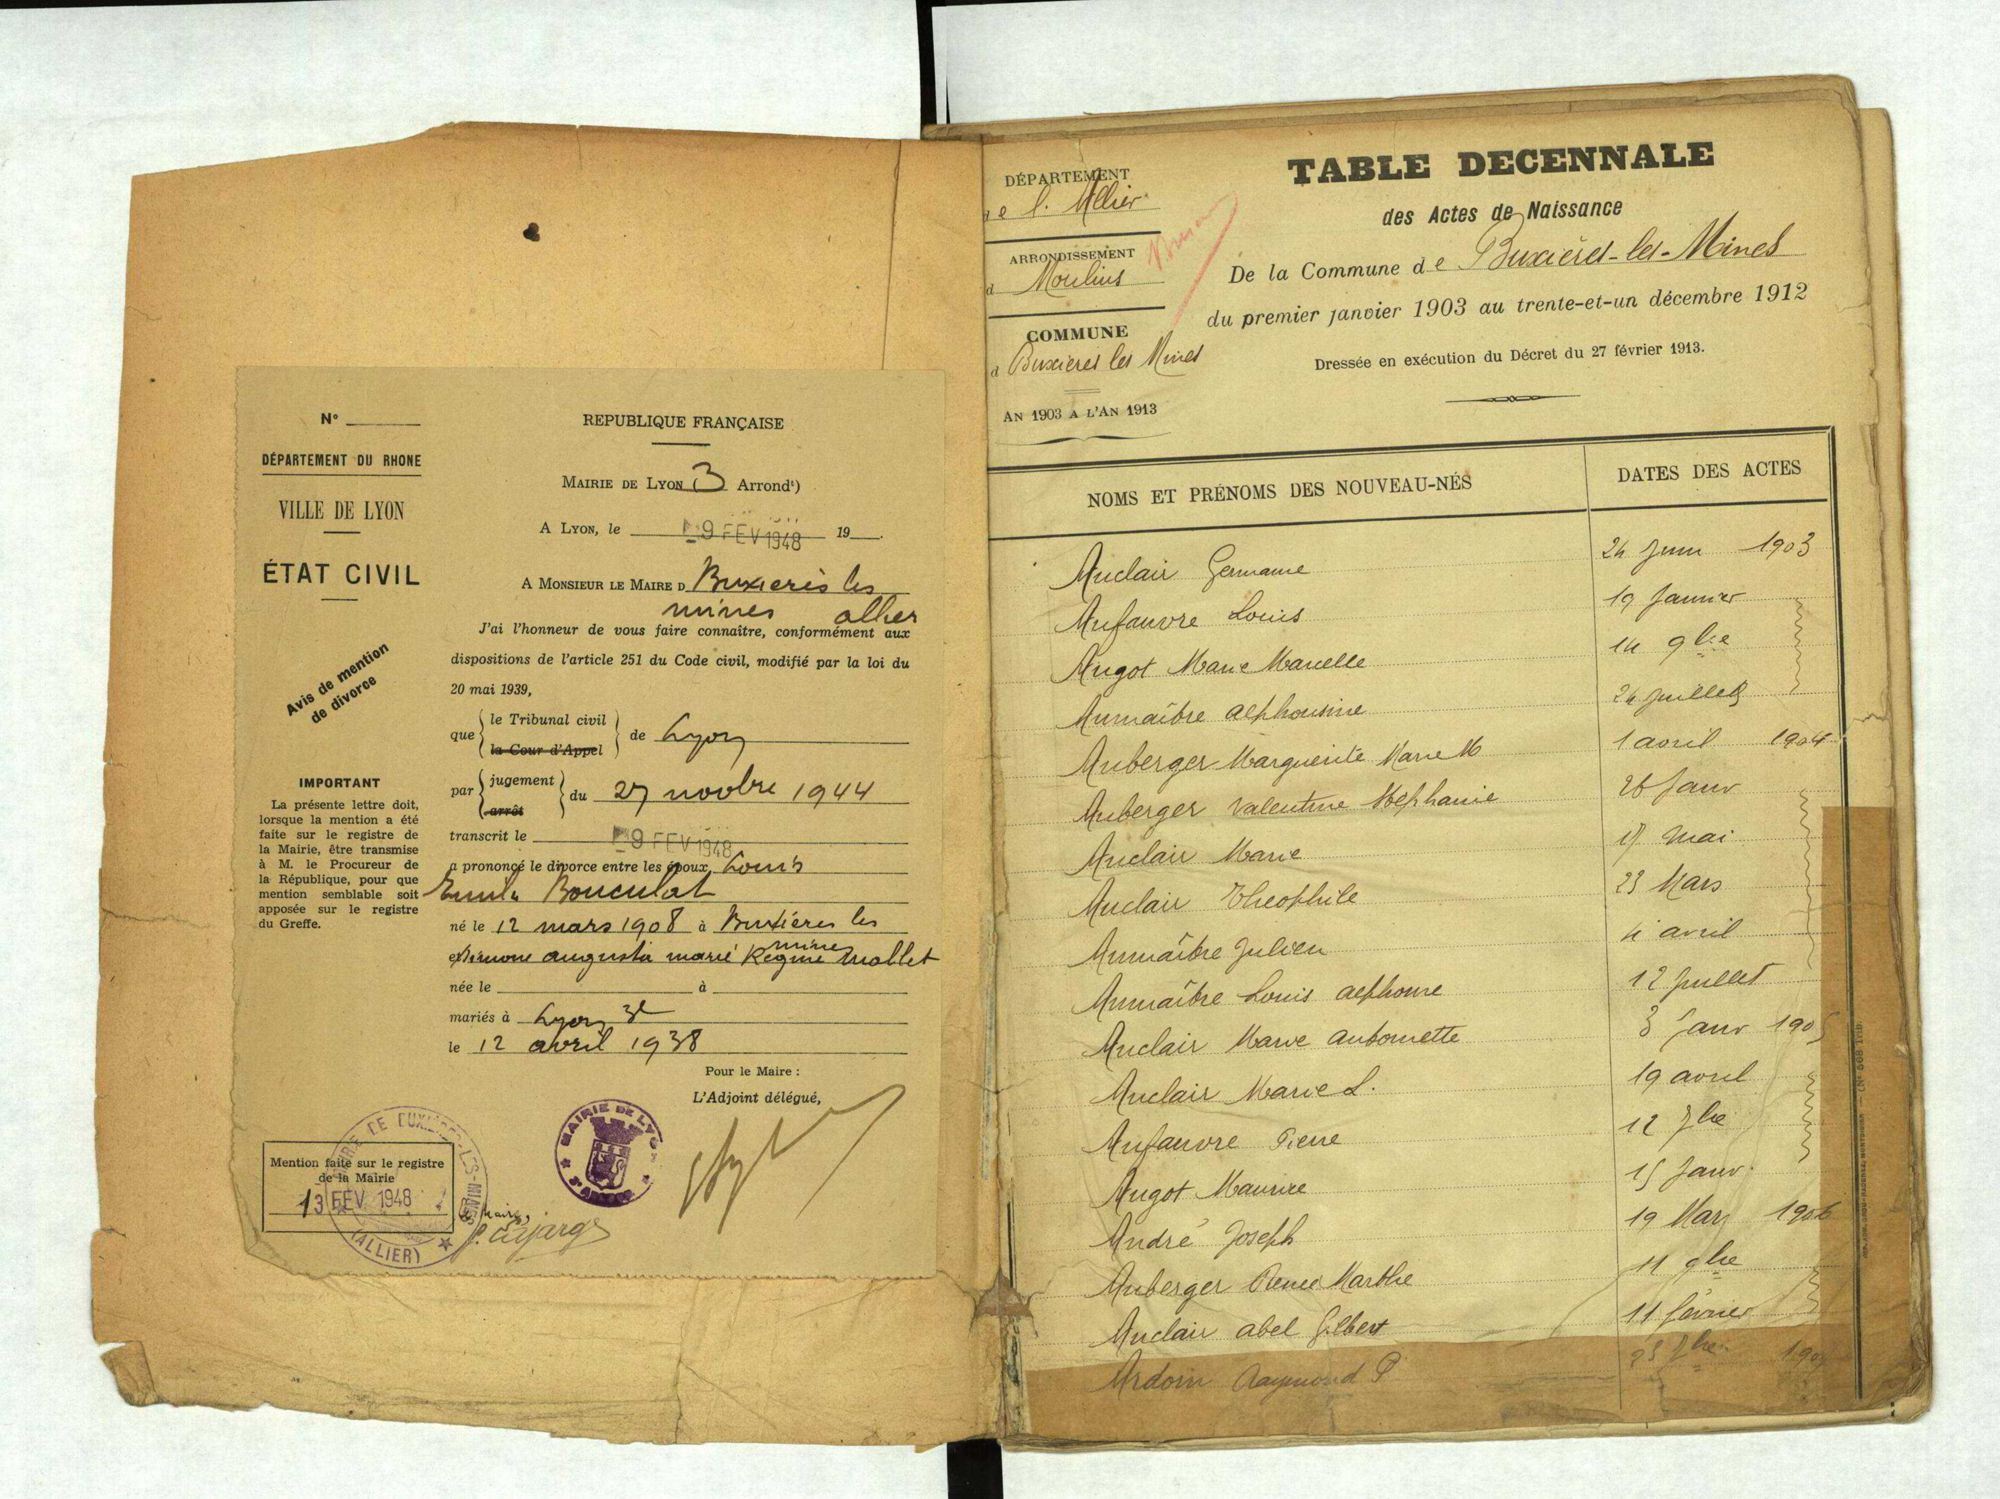 N°
DÉPARTEMENT DU RHONE
VILLE DE LYON
ÉTAT CIVIL
Avis de mention
de divorce
IMPORTANT
La présente lettre doit,
lorsque la mention a été
faite sur le registre de
la Mairie, être transmise
à M. le Procureur de
la République, pour que
mention semblable soit
apposée sur le registre
du Greffe.
REPUBLIQUE FRANÇAISE
MAIRIE DE LYON 3 Arrondt)
A LYON, le 9 FEV 1948 19
A MONSIEUR LE MAIRE D Buxieres les
mines allier
J'ai l'honneur de vous faire connaître, conformément aux
dispositions de l'article 251 du Code civil, modifié par la loi du
20 mai 1939,
que le Tribunal civil de Lyon
la Cour d'Appel
par jugement du 27 novbre 1944
arrêt
transcrit le 9 FEV 1948
a prononcé le divorce entre les époux Louis
Emile Bouculat
né le 12 mars 1908 à Buxières les
mines
et Simone augusta marie Regine Mollet
née le à
mariés à Lyon 3e
le 12 avril 1938
Pour le Maire :
L'Adjoint délégué,
MAIRIE DE LYON
MAIRIE DE BUXIERES-LES-MINES
(ALLIER)
Mention faite sur le registre
de la Mairie
13 FEV 1948
Maire,
DÉPARTEMENT
de l'Allier
ARRONDISSEMENT
d Moulins
COMMUNE
d Buxieres les Mines
AN 1903 A L'AN 1913
TABLE DECENNALE
des Actes de Naissance
De la Commune de Buxières-les-Mines
du premier janvier 1903 au trente-et-un décembre 1912
Dressée en exécution du Décret du 27 février 1913.
NOMS ET PRÉNOMS DES NOUVEAU-NÉS DATES DES ACTES
Auclair Germaine 24 Juin 1903
Aufauvre Louis 19 Janvier
Augot Marie Marcelle 14 9bre
Aumaître Alphonsine 24 Juillet
Auberger Marguerite Marie M 1 avril 1904
Auberger Valentine Stéphanie 26 Janv
Auclair Marie 17 Mai
Auclair Théophile 23 Mars
Aumaître Julien 4 avril
Aumaître Louis Alphonse 12 Juillet
Auclair Marie Antoinette 3 Janv 1905
Auclair Marie L. 19 avril
Aufauvre Pierre 12 7bre
Augot Maurice 15 Janv.
André Joseph 19 Mars 1906
Auberger Renée Marthe 11 9bre
Auclair Abel Gilbert 11 Février
Ardoin Raymond P